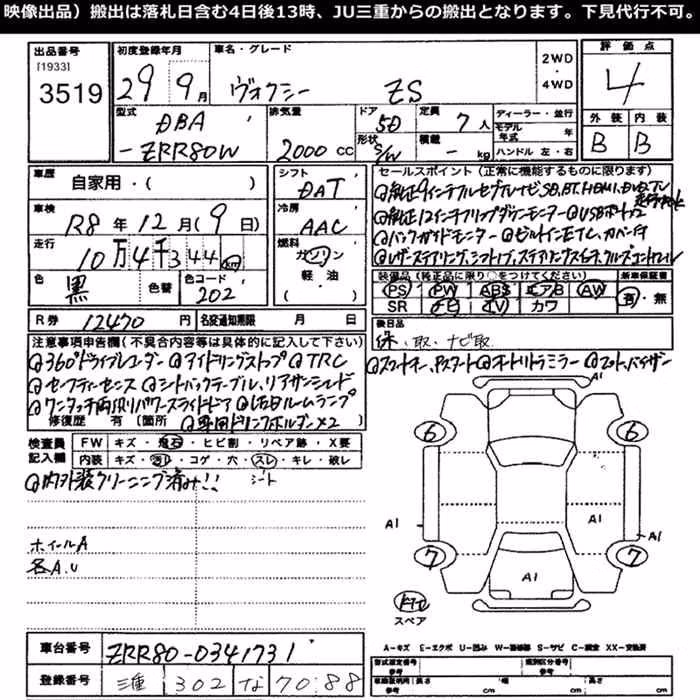 映像出品）搬出は落札日含む4日後13時、JU三重からの搬出となります。下見代行不可。
出品番号
[1933]
3519
初度登録年月
29 9月
車名・グレード
ヴォクシー ZS
2WD
・
4WD
評価点
4
外装 内装
B B
型式
DBA
-ZRR80W
排気量
2000 CC
ドア
5D
形状
S/W
定員
7人
積載
- kg
ディーラー・並行
モデル年式 年
ハンドル 左・右
車歴
自家用・( )
車検
R8年12月(9日)
走行
10万4千344 km
色
黒
色替
色コード
202
シフト
DAT
冷房
AAC
燃料
ガソリン
軽・油
( )
セールスポイント（正常に機能するものに限ります）
@純正9インチフルセグナビ、SD,BT,HDMI,DVD,TV
@純正12インチフリップダウンモニター @USBポート×2
@バックガイドモニター @ビルトインETC、カバー付
@レザーステアリング、シフトノブ、ステアリングスイッチ、クルーズコントロール
装備品（純正品に限り○をつけてください）
PS PW ABS エアB AW
SR ナビ TV カワ
新車保証書
有・無
R券 12470円
名変通知期限 月 日
後日品
保、取、ナビ取
注意事項申告欄（不具合内容等は具体的に記入して下さい）
@360°ドライブレコーダー @アイドリングストップ @TRC
@セーフティーセンス @シートバックテーブル、リアサンシェード
@ワンタッチ両側パワースライドドア @LEDルームランプ
修復歴 有 [箇所 @専用ドリンクホルダー×2 ]
@スマートキー、Pスタート @オートリトラミラー @マット、バイザー
検査員記入欄
FW キズ・飛石・ヒビ割・リペア跡・X要
内装 キズ・汚れ・コゲ・穴・スレ・キレ・破レ
シート
@内外装クリーニング済み!!
ホイールA
各A.U
A1
6 6
A1 A1 A1
7 7
A1
スペア
A-キズ E-エクボ U-凹み W-補修跡 S-サビ C-腐食 XX-交換済
車台番号
ZRR80-0341731
登録番号
三重 302 な 70-88
型式指定番号 参考
類別区分番号 参考
車検証明所 参考 長さ cm 幅 cm 高さ cm